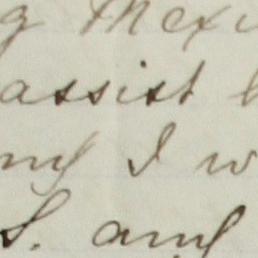 g Mexi
assist
my I w
S. any